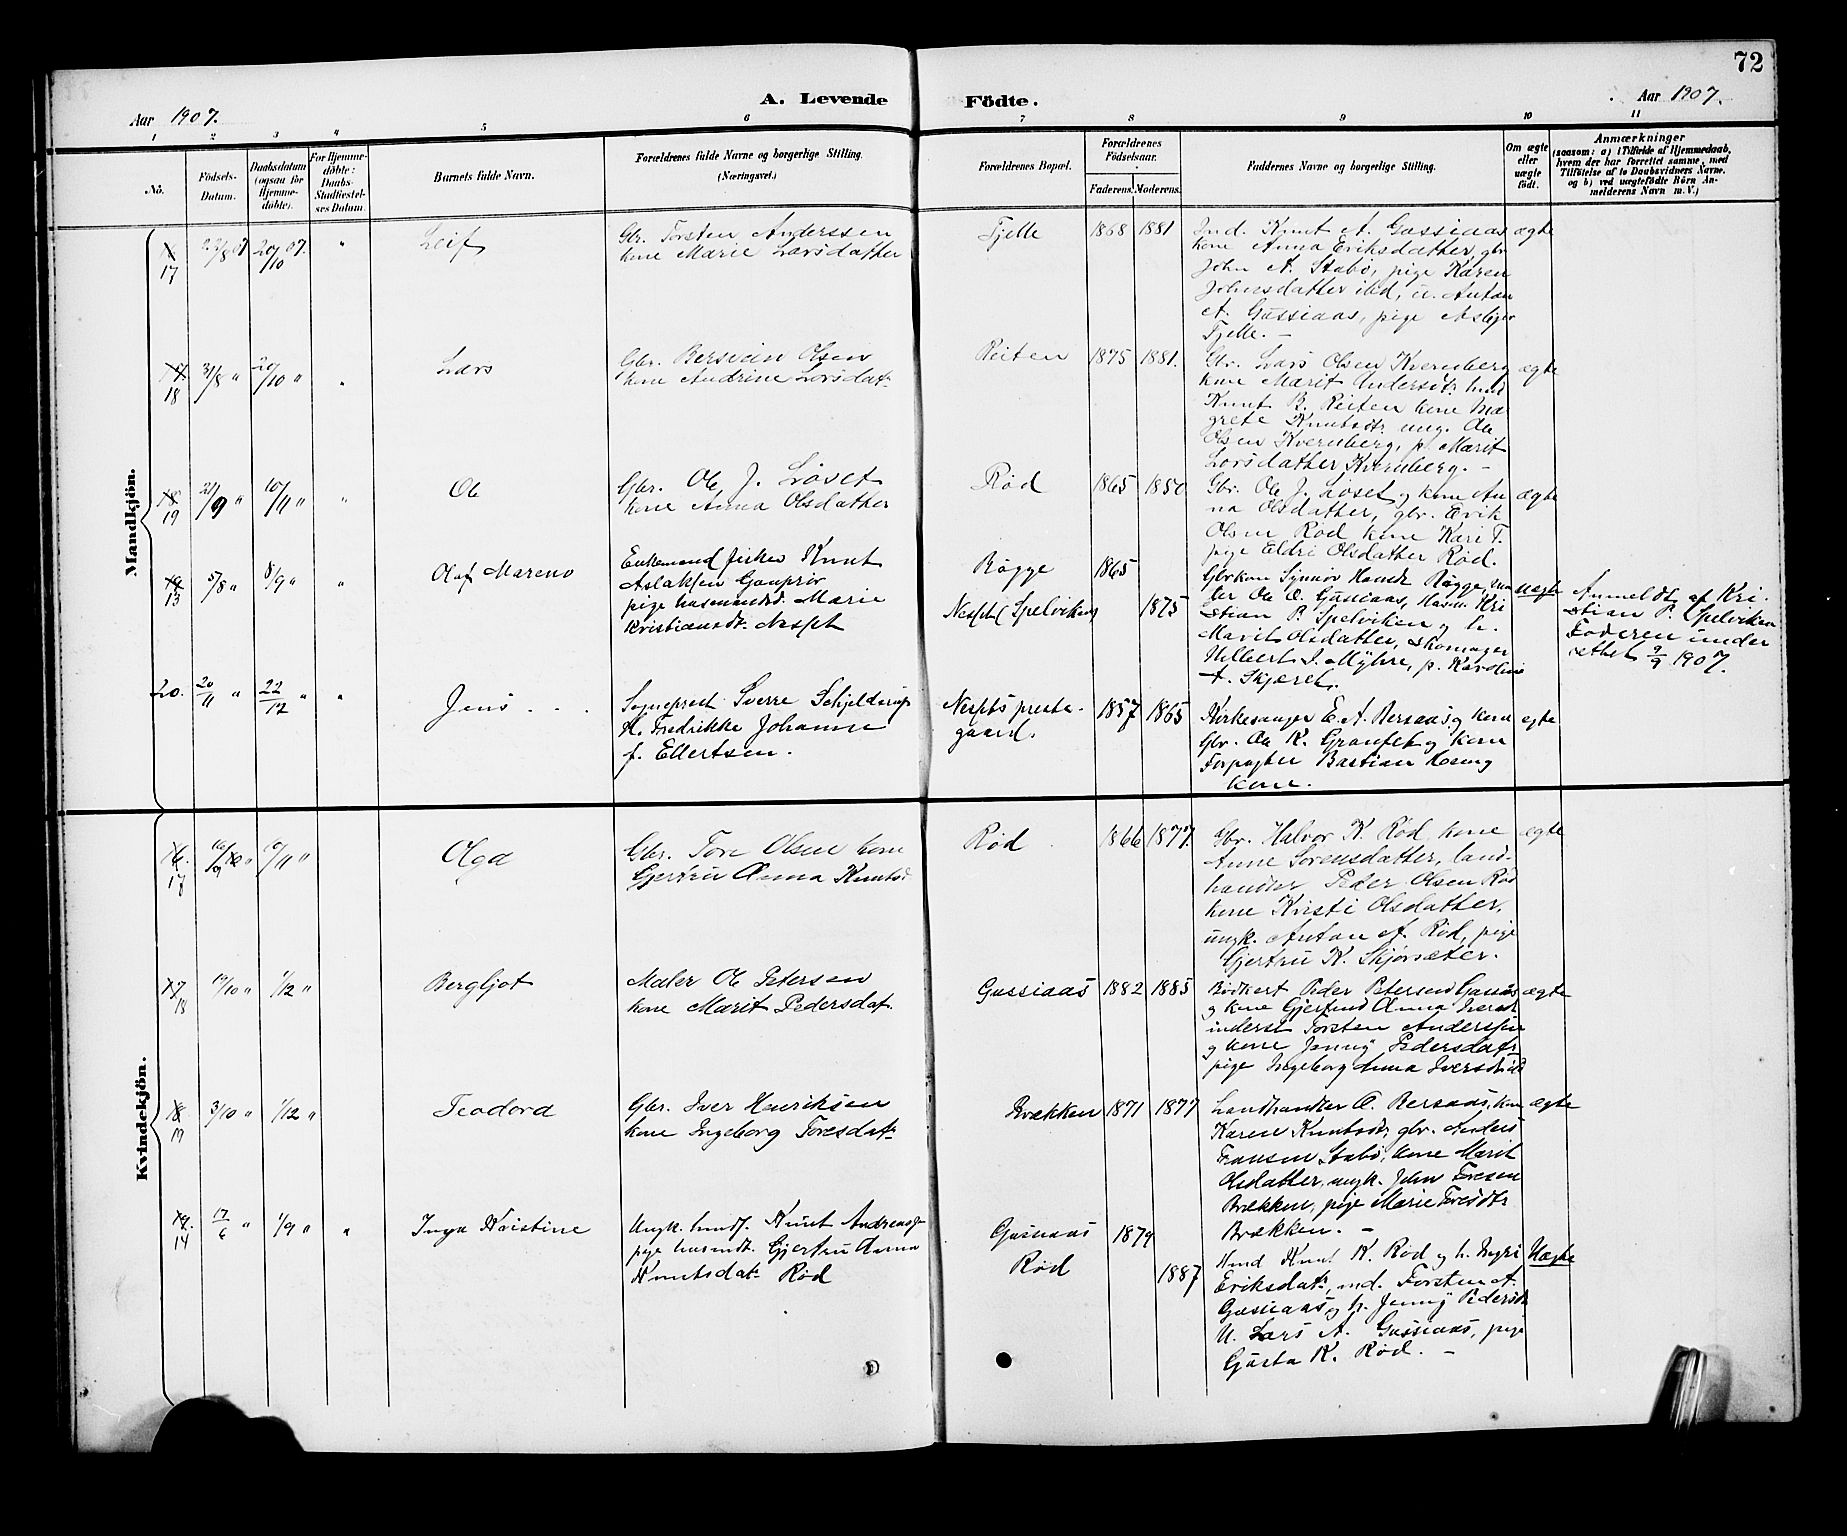 72
Aar 1907.
A. Levende Födte.
Aar 1907.
1 2 3 4 5 6 7 8 9 10 11
No.
Födsels-
Datum.
Daabsdatum
(ogsaa for
Hjemme-
döbte).
For Hjemme-
döbte:
Daabs-
Stadfæstel-
ses Datum.
Barnets fulde Navn.
Forældrenes fulde Navne og borgerlige Stilling.
(Næringsvei.)
Forældrenes Bopæl.
Forældrenes
Födselsaar.
Faderens. Moderens.
Faddernes Navne og borgerlige Stilling.
Om ægte
eller
uægte
födt.
Anmærkninger
(saasom: a) i Tilfælde af Hjemmedaab,
hvem der har forrettet samme, med
Tilföielse af to Daabsvidners Navne,
og b) ved uægtefödte Börn An-
melderens Navn m. V.)
Mandkjön.
17 22/8 07 20/10 07. " Leif
Gbr. Torsten Anderssen
kone Marie Larsdatter
Tjelle 1868 1881
Ind. Knut A. Gussiaas
kone Anna Eriksdatter, gbr.
John A. Stabö, pige Karen
Johnsdatter ibd, u. Anton
A. Gussiaas, pige Aslaug
Tjelle. –
ægte
18 31/8 " 20/10 " " Lars
Gbr. Bersvein Olsen
kone Andrine Larsdat.
Reiten 1875 1881.
Gbr. Lars Olsen Kvernberg
kone Marit Andersdtr.
Knut B. Reiten kone Mar
grete Knutsdtr. ung. Ola
Olsen Kvernberg, p. Marit
Larsdatter Kvernberg. –
ægte
19 21/9 " 10/11 " " Ole
Gbr. Ole J. Löset
kone Anna Olsdatter
Rød 1865 1850
Gbr. Ole J. Löset og kone An
na Olsdatter, gbr. Erik
Olsen Rød kone Kari T.
pige Eldri Olsdatter Rød.
ægte
13 5/8 " 8/9 " " Olaf Mareno
Enkemand fisker Knut
Aslaksen Gauprör
pige husmandsd. Marie
Kristiansdt. Nesset
Bøgge 1865
Nesset (Spelviken) 1875
Gbrkone Synnöv Hansdt. Bøgge,
Ole O. Gussiaas, Husm. Kri
stian P. Spelviken og h.
Marit Olsdatter, skomager
Hilbert I. Myhre, p. Karoline
A. Skjæret.
uægte
Anmeldt af Kri-
stian P. Spelviken
Faderen under
rettet 9/9 1907.
20. 20/11 " 22/12 " " Jens . .
Sogneprest Sverre Schjelderup
H. Fredrikke Johanne
f. Ellertsen.
Nessets preste-
gaard. 1857 1865
Kirkesanger E. A. Bersaas og kone
Gbr. Ole K. Granset og kone
Forpagter Bastian Rosung
kone.
egte
Kvindekjön.
16
17 16/9 " 10/11 " Olga
Gbr. Tore Olsen kone
Gjertru Anna Knutsd
Rød 1866 1877.
Gbr. Halvor K. Rød kone
Anne Sorensdatter, land-
handler Peder Olsen Rød
kone Kristi Olsdatter,
ungk. Anton A. Rød, pige
Gjertru K. Skjørsæter.
ægte
17
18 19/10 " 1/12 " Bergljot
Maler Ole Petersen
kone Marit Pedersdat.
Gussiaas 1882 1885
Bødkert Peder Petersen Gussiås
og kone Gjertrud Anna Iversdt.
inderst Torsten Anderssen
og kone Jenny Pedersdatr
pige Ingeborg Anna Iversdtr
ægte
18
19 3/10 " 1/12 " Teodora
Gbr. Iver Henriksen
kone Ingeborg Toresdat.
Brækken 1871 1877
Landhandler A. Bersaas, kone
Karen Knutsdt, gbr. Anders
Hansen Stabø, kone Marit
Olsdatter, ungk. John Toresen
Brækken, pige Marie Toresdtr
Brækken. –
ægte
19.
14 17/6 " 1/9 " " Inga Kristine
Ungk. Knut Andreass.
pige husmdt. Gjertru Anna
Knutsdat. Rød
Gussiaas 1879
Rød 1887
Knut K. Rød og h. Ingri
Eriksdat., ind. Torsten A.
Gussiaas og h. Jenny Pedersdt
U. Lars A. Gussiaas, pige
Gusta K. Rød. –
Uægte